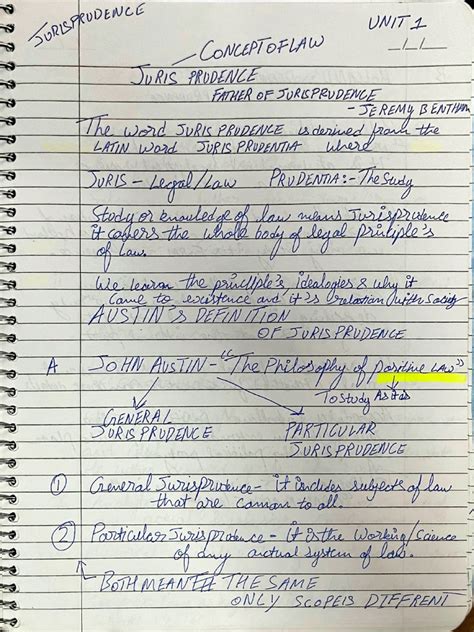 JURISPRUDENCE
UNIT 1
CONCEPT OF LAW
JURIS PRUDENCE
FATHER OF JURISPRUDENCE
- JEREMY BENTHAM
The word JURIS PRUDENCE is derived from the
LATIN word JURIS PRUDENTIA where
JURIS - Legal/Law PRUDENTIA:- The Study
Study or knowledge of law means Jurisprudence
it covers the whole body of legal principle's
of law.
We learn the principle's, idealogies & why it
came to existence and it is relation with Society
AUSTIN'S DEFINITION
OF JURISPRUDENCE
A JOHN AUSTIN - "The Philosophy of positive LAW"
To study As it is
GENERAL PARTICULAR
JURISPRUDENCE JURISPRUDENCE
① General Jurisprudence - it includes subjects of law
that are comman to all.
② Particular Jurisprudence - it is the working/science
of any actual system of law.
BOTH MEANT THE SAME
ONLY SCOPE IS DIFFRENT